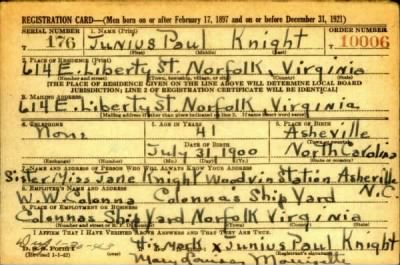 REGISTRATION CARD—(Men born on or after February 17, 1897 and on or before December 31, 1921)
SERIAL NUMBER 1. NAME (Print) ORDER NUMBER
T 176 Junius Paul Knight 10006
(First) (Middle) (Last)
2. PLACE OF RESIDENCE (Print)
614 E. Liberty St. Norfolk Virginia
(Number and street) (Town, township, village, or city) (County) (State)
[THE PLACE OF RESIDENCE GIVEN ON THE LINE ABOVE WILL DETERMINE LOCAL BOARD
JURISDICTION; LINE 2 OF REGISTRATION CERTIFICATE WILL BE IDENTICAL]
3. MAILING ADDRESS
614 E. Liberty St. Norfolk, Virginia
[Mailing address if other than place indicated on line 2. If same insert word same]
4. TELEPHONE 5. AGE IN YEARS 6. PLACE OF BIRTH
None 41 Asheville
DATE OF BIRTH (Town or county)
July 31 1900 North Carolina
(Exchange) (Number) (Mo.) (Day) (Yr.) (State or country)
7. NAME AND ADDRESS OF PERSON WHO WILL ALWAYS KNOW YOUR ADDRESS
Sister/Miss Jane Knight Station Asheville
N.C
8. EMPLOYER'S NAME AND ADDRESS
W.W. Colonna Colonna's Ship Yard
9. PLACE OF EMPLOYMENT OR BUSINESS
Colonnas Ship Yard Norfolk Virginia
(Number and street or R. F. D. number) (Town) (County) (State)
I AFFIRM THAT I HAVE VERIFIED ABOVE ANSWERS AND THAT THEY ARE TRUE.
D. S. S. FORM 1
(Revised 1-1-42) His Mark x Junius Paul Knight
(Registrant's signature)
Mary Louise